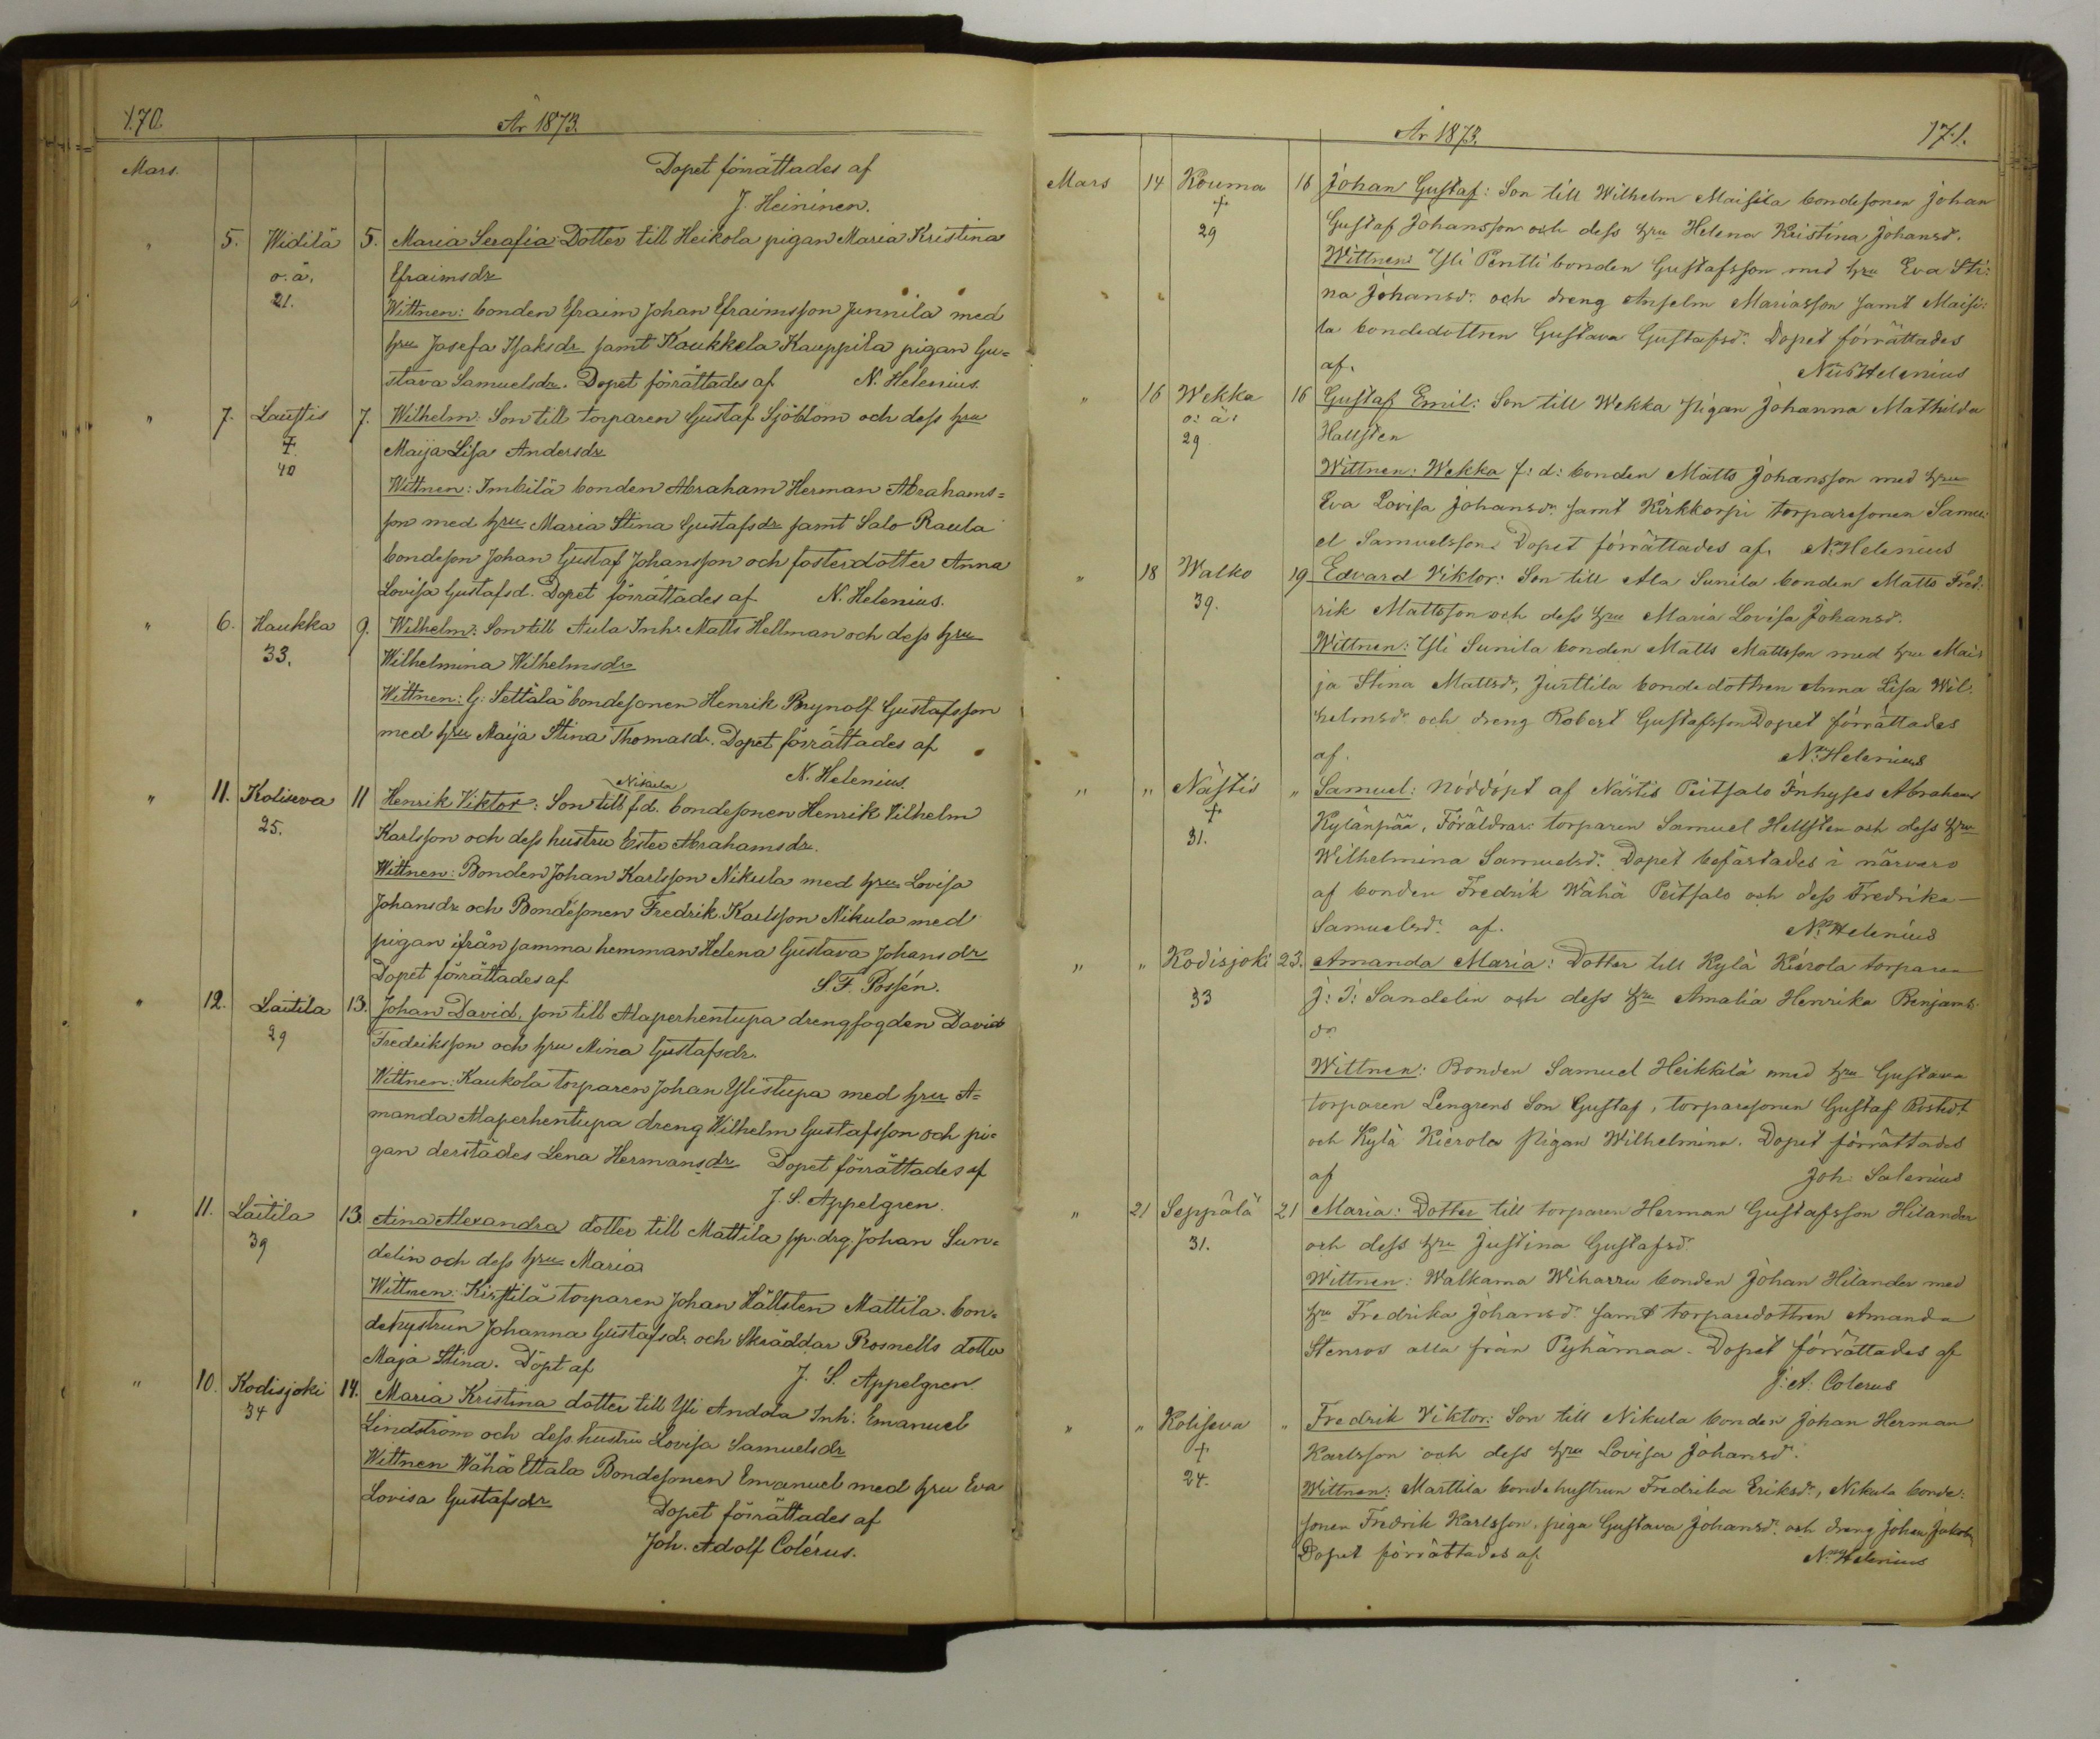 170.
År 1873.
Mars.
Dopet förrättades af
J. Heininen.
" 5. Widilä 5. Maria Serafia: Dotter till Heikola pigan Maria Kristina
o. ä. Efraimsdr
21. Wittnen: bonden Efraim Johan Efraimsson Junnila med
hru Josefa Isaksdr samt Kaukkela Kauppila pigan Gu=
stava Samuelsdr. Dopet förrättades af N. Helenius.
" 7. Laustis 7. Wilhelm: Son till torparen Gustaf Sjöblom och dess hru
+ Maija Lisa Andersdr
40 Wittnen: Imbilä bonden Abraham Herman Abrahams=
son med hru Maria Stina Gustafsdr samt Salo-Raula
bondeson Johan Gustaf Johansson och fosterdotter Anna
Lovisa Gustafsd. Dopet förrättades af N. Helenius.
" 6. Haukka 9. Wilhelm: Son till Aula Inh: Matts Hellman och dess hru
33. Wilhelmina Wilhelmsdr
Wittnen: G. Settälä bondesonen Henrik Brynolf Gustafsson
med hru Maija Stina Thomasdr. Dopet förrättades af
N. Helenius.
" 11. Koliseva 11 Henrik Viktor: Son till Nikula f.d. bondesonen Henrik Vilhelm
25. Karlsson och dess hustru Ester Abrahamsdr.
Wittnen: Bonden Johan Karlsson Nikula med hru Lovisa
Johansdr och Bondesonen Fredrik Karlsson Nikula med
pigan ifrån samma hemman Helena Gustava Johansdr
Dopet förrättades af S. F. Possén.
" 12. Laitila 13. Johan David, son till Alaperhentupa drengfogden David
29 Fredriksson och hru Mina Gustafsdr.
Wittnen: Kaukola torparen Johan Ylistupa med hru A=
manda Alaperhentupa dreng Wilhelm Gustafsson och pi=
gan derstädes Lena Hermansdr Dopet förrättades af
J. S. Appelgren.
" 11. Laitila 13. Aina Alexandra dotter till Mattila sp. drg. Johan Sun=
39 delin och dess hru Maria
Wittnen: Kirstilä torparen Johan Hällsten Mattila bon=
dehustrun Johanna Gustafsdr. och Skräddar Rosnells dotter
Maja Stina. Döpt af J. S. Appelgren.
" 10. Kodisjoki 14. Maria Kristina dotter till Yli Andola Inh: Emanuel
34 Lindström och dess hustru Lovisa Samuelsdr
Wittnen Wähä Ettala Bondesonen Emanuel med hru Eva
Lovisa Gustafsdr Dopet förrättades af
Joh. Adolf Colérus.
År 1873.
171.
Mars 14 Kouma 16 Johan Gustaf: Son till Wilhelm Maisila bondesonen Johan
+ Gustaf Johansson och dess hru Helena Kristina Johansd.
29 Wittnen: Yli Pentti bonden Gustafsson med hru Eva Sti:
na Johansdr. och dreng Anselm Mariasson samt Maisi:
la bondedottren Gustava Gustafsdr. Dopet förrättades
af. Nils Helenius
" 16 Wekka 16 Gustaf Emil: Son till Wekka pigan Johanna Mathilda
o: ä: Hallsten
29 Wittnen: Wekka f: d: bonden Matts Johansson med hru
Eva Lovisa Johansdr. samt Kirkkorpi torparesonen Samu:
el Samuelsson. Dopet förrättades af. Ns Helenius
" 18 Walko 19 Edvard Viktor: Son till Ala Sunila bonden Matts Fred:
39. rik Mattsson och dess hru Maria Lovisa Johansd.
Wittnen: Yli Sunila bonden Matts Mattsson med hru Mai:
ja Stina Mattsdr, Justtila bondedottren Anna Lisa Wil:
helmsdr och dreng Robert Gustafsson Dopet förrättades
af. Ns Helenius
" " Nästis " Samuel: nöddöpt af Nästis Peitsalo Inhyses Abraham
+ Kylänpää, Föräldrar: torparen Samuel Hellsten och dess hru
31. Wilhelmina Samuelsdr. Dopet befästades i närvaro
af bonden Fredrik Wähä Peitsalo och dess Fredrika
Samuelsdr. af. Ns Helenius
" " Kodisjoki 23. Amanda Maria: Dotter till Kylä Kierola torparen
33 J: I: Sandelin och dess hru Amalia Henrika Benjams
dr
Wittnen: Bonden Samuel Heikkilä med hru Gustava
torparen Lengrens Son Gustaf, torparesonen Gustaf Rostedt
och Kylä Kierola pigan Wilhelmina. Dopet förrättades
af Joh: Salenius
" 21 Seppälä 21 Maria: Dotter till torparen Herman Gustafsson Hilander
31. och dess hru Justina Gustafsd
Wittnen: Walkama Wiharru bonden Johan Hilander med
hru Fredrika Johansdr samt torparedottren Amanda
Stenros alla från Pyhämaa. Dopet förrättades af
J: A: Colerus
" " Koliseva " Fredrik Viktor: Son till Nikula bonden Johan Herman
+ Karlsson och dess hru Lovisa Johansd.
24. Wittnen: Marttila bondehustrun Fredrika Eriksdr, Nikula bonde:
sonen Fredrik Karlsson, piga Gustava Johansdr. och dreng Johan Jakobs
Dopet förrättades af Ns Helenius